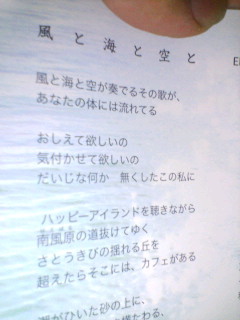 風と海と空と
風と海と空が奏でるその歌が、
あなたの体には流れてる
おしえて欲しいの
気付かせて欲しいの
だいじな何か 無くしたこの私に
ハッピーアイランドを聴きながら
南風原の道抜けてゆく
さとうきびの揺れる丘を
超えたらそこには、カフェがある
がひいた砂の上に、
横たわる、